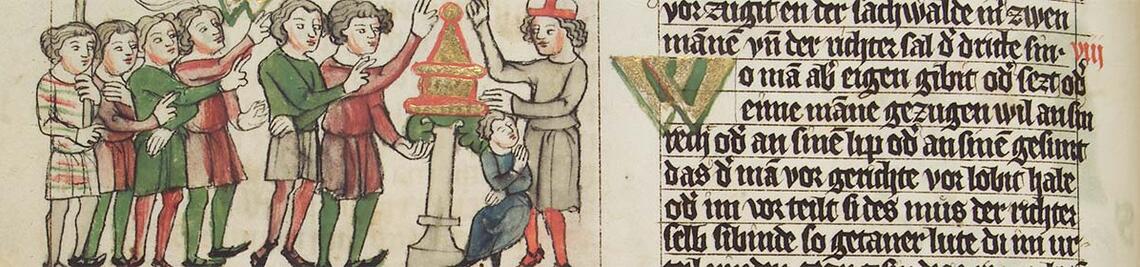 vor zugit en der sachwalde mit zwen
mānē vn̄ der richter sal d̓ dritte sin· viij
Wo mā ab̓ eigen gibit od̓ sezt od̓
einne māne gezugen wil an sin
rech od̓ an sinē lip od̓ an sinē gesunt
das d̓ mā vor gerichte vor lobit hate
od̓ im vor teilt si des mus der richter
selb sibinde so getaner lute di im ur